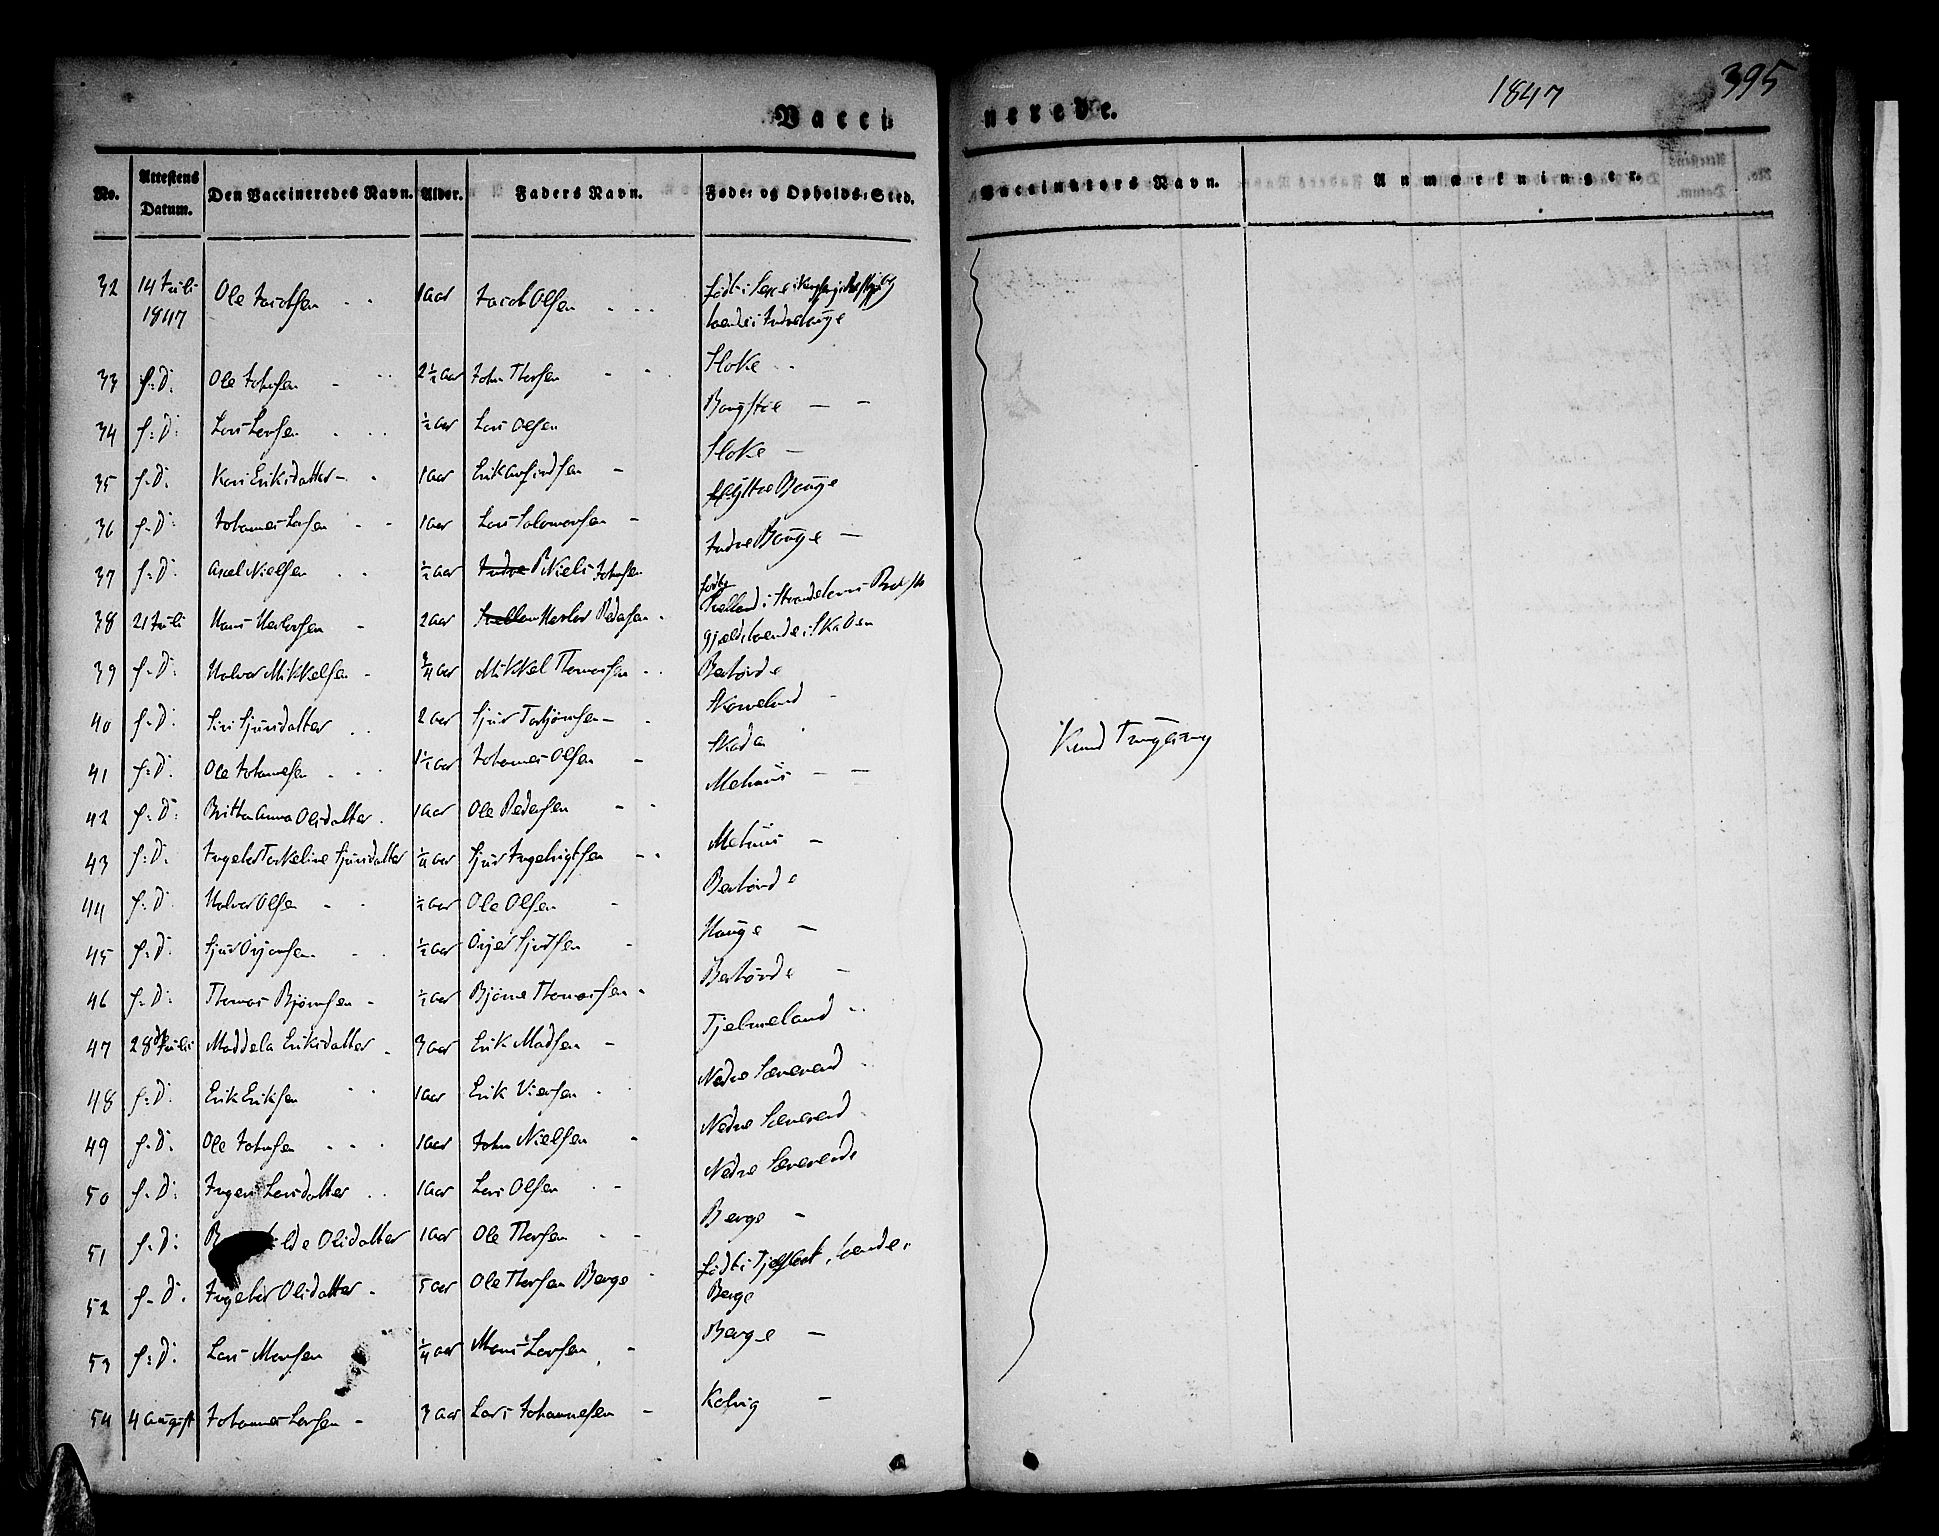 1847
395
Vaccinerede.
No. Attestens Datum. Den Vaccineredes Navn. Alder. Faders Navn. Føde- og Opholds-Sted. Vaccinateurs Navn. Anmærkninger.
32 14 Juli 1847 Ole Jacobsen 1 aar Jacob Olsen født i
boende i Indrehauge
33 f: D: Ole Johnsen 2½ aar John Thorsen Stoke
34 f: D: Lars Larsen ½ aar Lars Olsen Bougstøe
35 f: D: Kari Eriksdatter 1 aar Erik Arfindsen Stoke
36 f: D: Johannes Larsen 1 aar Lars Salomonsen Yttre Bouge
37 f: D: Axel Nielsen ½ aar Niels Johnsen Indre Bouge
38 21 Juli Hans Herlofsen 2 aar Herlof Pedersen født i
gjæld, boende i Skaden
39 f: D: Halvor Mikkelsen ¾ aar Mikkel Thomassen Berhovde
40 f: D: Siri Sjursdatter 2 aar Sjur Torbjørnsen Skarveland
41 f: D: Ole Johannesen 1½ aar Johannes Olsen Skaden
42 f: D: Britha Anna Olsdatter 1 aar Ole Pedersen Mehuus
43 f: D: Ingebor Torkeline Sjursdatter ¼ aar Sjur Ingebrigtsen Mehuus
44 f: D: Halvor Olsen ½ aar Ole Olsen Berhovde
45 f: D: Sjur ½ aar Sjursen Hauge
46 f: D: Thomas Bjørnsen ½ aar Bjørne Thomassen Berhovde
47 28 Juli Maddela Eriksdatter 3 aar Erik Madsen Tjelmeland
48 f: D: Erik Eriksen 1 aar Erik Viersen Nedre Særevend
49 f: D: Ole Johnsen 1 aar John Nielsen Nedre Særevend
50 f: D: Inger Larsdatter 1 aar Lars Olsen Nedre Særevende
51 f: D: Olsdatter 1 aar Ole Thorsen Berge
52 f: D: Ingebor Olsdatter 5 aar Ole Thorsen Berge født i Tjelflaat, boende i
Berge
53 f: D: Lars Monsen ¼ aar Mons Larsen Berge
54 4 August Johannes Larsen 3 aar Lars Johannesen Kolvig
Knud